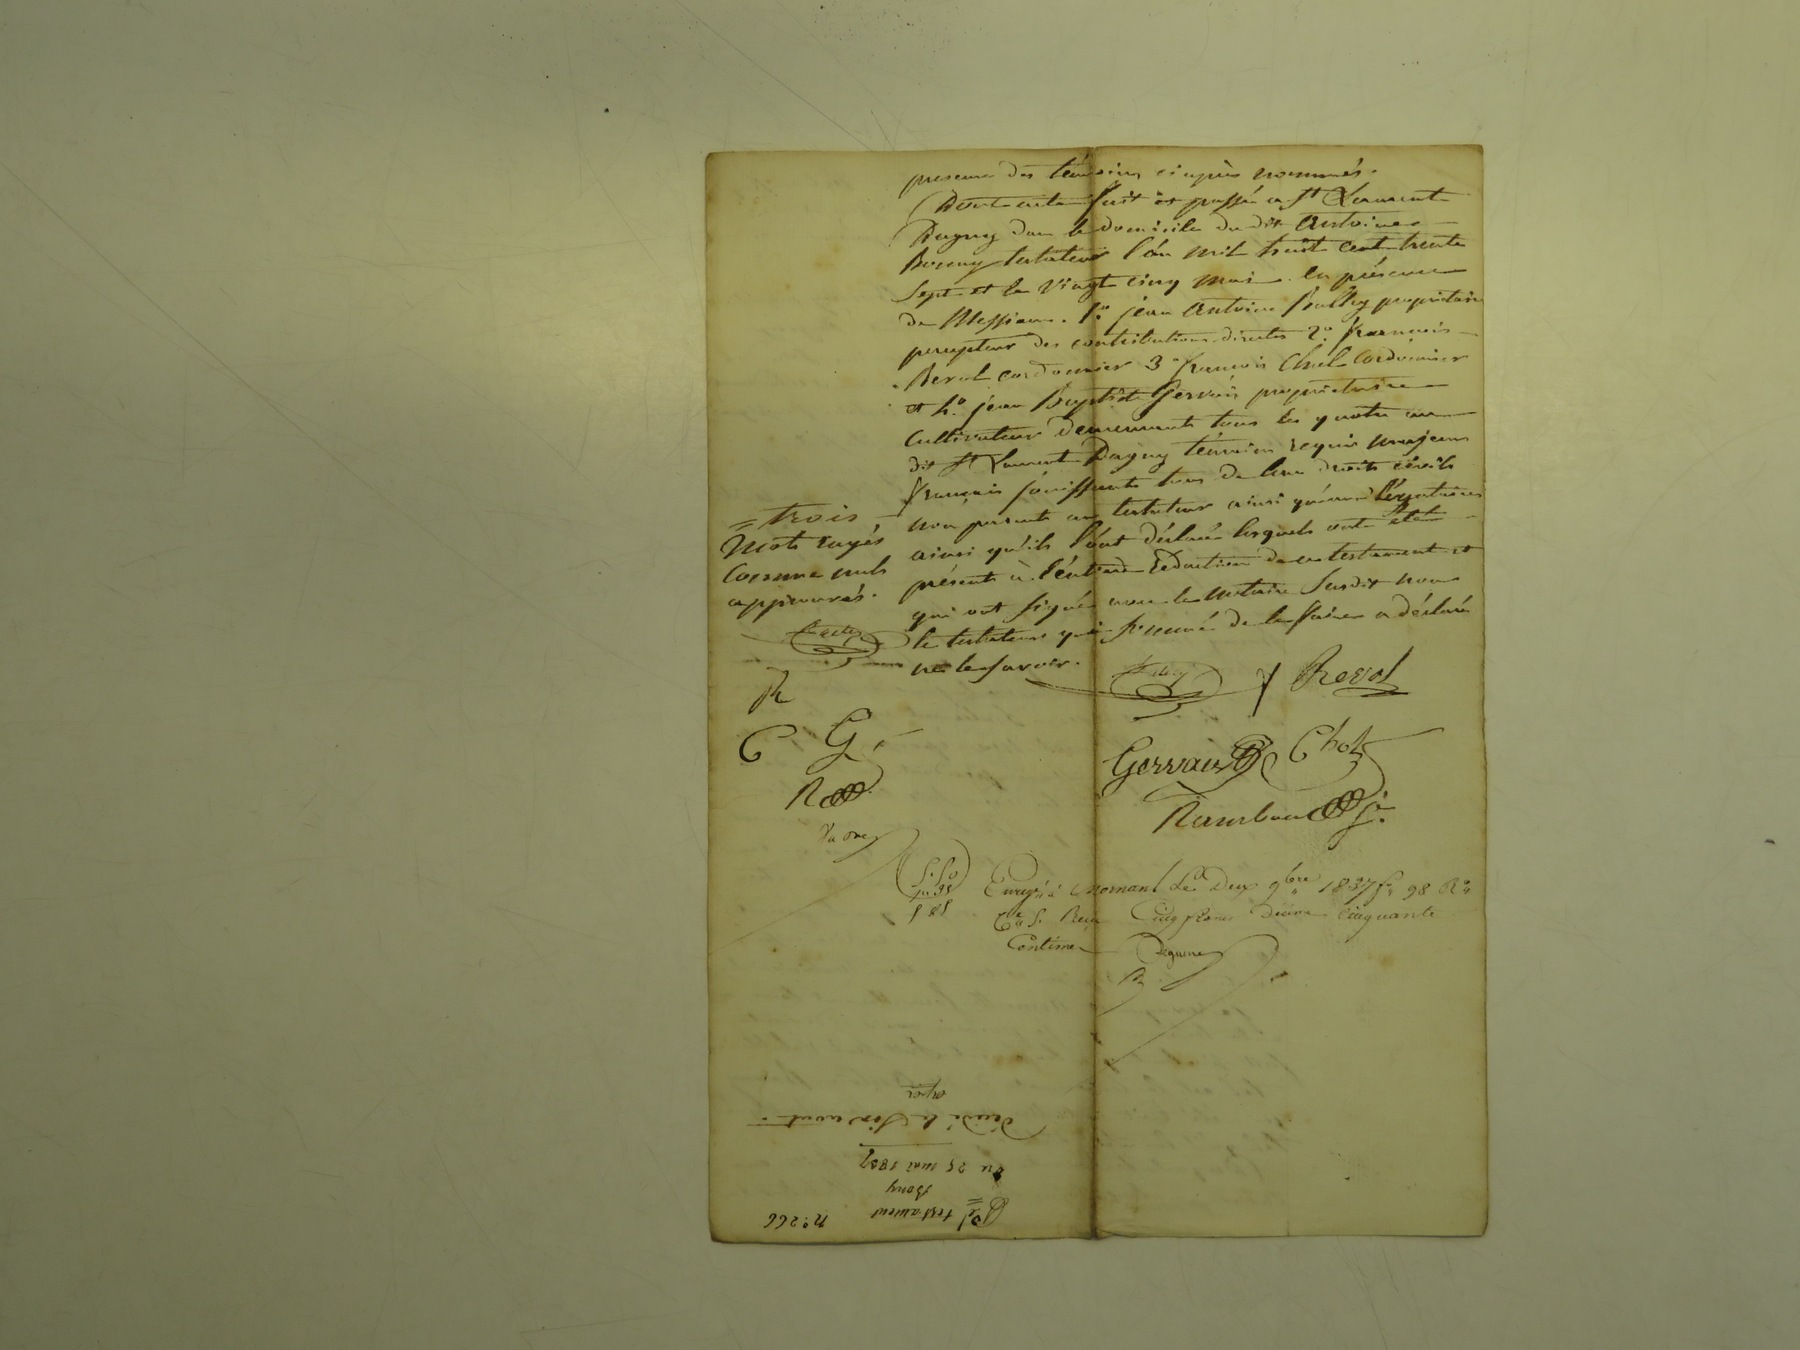 presence des témoins ciaprès nommés.
Dont acte fait et passé a St Laurent
Dagny dans le domicile du dit Antoine
Boony testateur l'an mil huit cent trente
sept et le vingt cinq mai. En présence
de Messieurs. 1° jean Antoine Bulley propriétaire
percepteur des contributions directes 2° françois
Revol cordonnier 3° françois Chol Cordonnier
et 4° jean Baptiste Gervais propriétaire
Cultivateur Demeurants tous les quatre au
dit St Laurent Dagny témoins requis majeurs
français jouissants tous de leur droits civils
non parents au testateur ainsi qu'aux légataires
ainsi qu'ils l'ont déclaré lesquels ont été
présents à l'entière Rédaction de ce testament et
qui ont signé avec le Notaire Susdit non
le testateur qui sommé de le faire a déclaré
ne le savoir.
= trois
Mots rayés
Comme nuls
approuvés.
R
C G
R
Revol
Gervais Chol
Rambaud
5.50
55
Enregé à Mornant Le Deux 9bre 1837 f° 98 R°
Ce 5. Reçu Cinq francs Dixme cinquante
Centimes
N° 266
testament
Bony
Du 25 mai 1837
décédé le Six aout